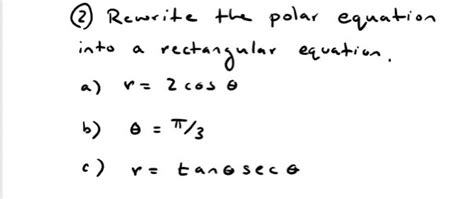 ② Rewrite the polar equation
into a rectangular equation.
a) r = 2 cos θ
b) θ = π/3
c) r = tanθ sec θ